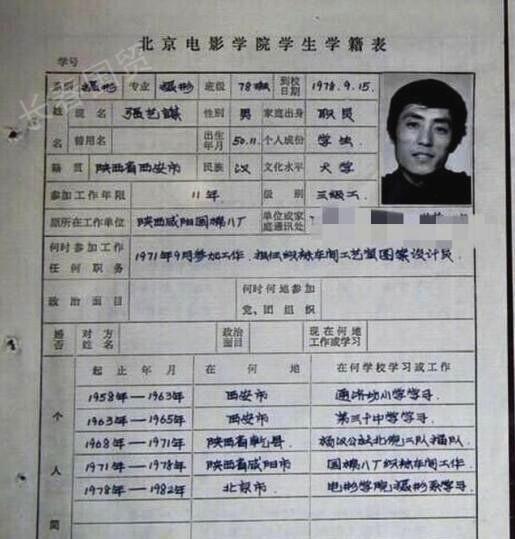 北京电影学院学生学籍表
学号
系别 摄影 专业 摄影 班级 78班 到校日期 1978.9.15.
姓 现名 张艺謀 性别 男 家庭出身 职员
名 曾用名 出生年月 50.11. 个人成份 学生
籍贯 陕西省西安市 民族 汉 文化水平 大学
参加工作年限 11年 级别 三级工
原所在工作单位 陕西咸阳国棉八厂 单位或家庭通讯处
何时参加工作任何职务 1971年9月参加工作. 担任织袜车间工艺室图案设计员.
政治面目 何时何地参加党、团组织
婚否 对方姓名 政治面目 现在何地工作或学习
个人简
起止年月 在何地 在何学校学习或工作
1958年—1963年 西安市 通济坊小学学习
1963年—1965年 西安市 第三十中学学习
1968年—1971年 陕西省乾县 杨汉公社北倪二队插队
1971年—1978年 陕西省咸阳市 国棉八厂织袜车间工作
1978年—1982年 北京市 电影学院摄影系学习